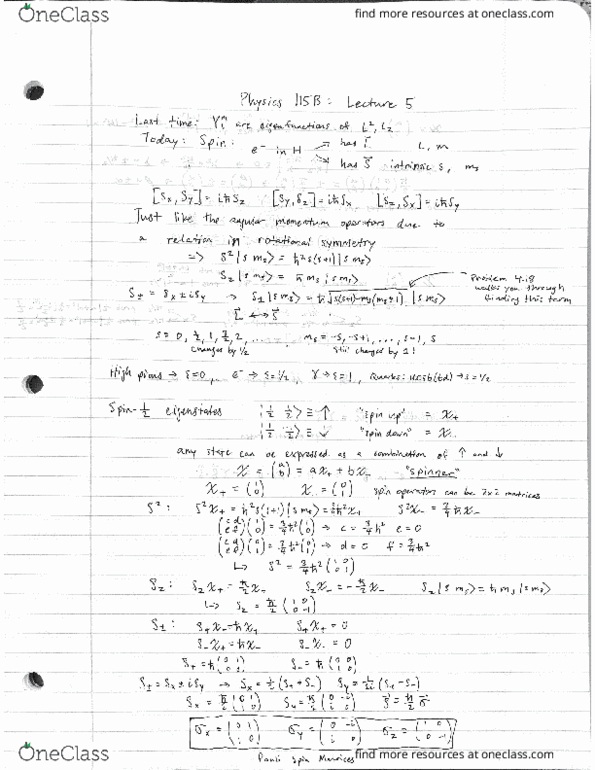 OneClass
find more resources at oneclass.com
Physics 115B: Lecture 5
Last time: Yₗᵐ are eigenfunctions of L², L_z
Today: Spin: e⁻ in H → has L⃗ L, m
→ has S⃗ intrinsic s, m_s
[S_x, S_y] = iħS_z [S_y, S_z] = iħS_x [S_z, S_x] = iħS_y
Just like the angular momentum operators due to
a relation in rotational symmetry
=> S²|s m_s> = ħ²s(s+1)|s m_s>
S_z|s m_s> = ħm_s|s m_s>
Problem 4.18
walks you through
finding this term
S_± = S_x ± iS_y → S_±|s m_s> = ħ√(s(s+1)-m_s(m_s±1)) |s m_s>
L⃗ ↔ S⃗
s = 0, ½, 1, 3/2, 2, ... m_s = -s, -s+1, ..., s-1, s
changes by 1/2 Still changes by 1!
pions → s=0, e⁻ → s=1/2, γ → s=1, Quarks: → s=1/2
Spin-½ eigenstates |½ ½> ≡ ↑ "spin up" = χ₊
|½ ½> ≡ ↓ "spin down" = χ₋
any state can be expressed as a combination of ↑ and ↓
χ = (a b) = aχ₊ + bχ₋ "spinner"
χ₊ = (1 0) χ₋ = (0 1) spin operators can be 2x2 matrices
S²: S²χ₊ = ħ²s(s+1)|s m_s> = ¾ħ²χ₊ S²χ₋ = ¾ħ²χ₋
(c d; e f)(1 0) = ¾ħ²(1 0) → c = ¾ħ² e = 0
(c d; e f)(0 1) = ¾ħ²(0 1) → d = 0 f = ¾ħ²
↳ S² = ¾ħ²(1 0; 0 1)
S_z: S_zχ₊ = ħ/2 χ₊ S_zχ₋ = -ħ/2 χ₋ S_z|s m_s> = ħm_s|s m_s>
↳ S_z = ħ/2 (1 0; 0 -1)
S_±: S₊χ₋ = ħχ₊ S₊χ₊ = 0
S₋χ₊ = ħχ₋ S₋χ₋ = 0
S₊ = ħ(0 1; 0 0) S₋ = ħ(0 0; 1 0)
S_± = S_x ± iS_y → S_x = ½(S₊ + S₋) S_y = 1/2i (S₊ - S₋)
S_x = ħ/2 (0 1; 1 0) S_y = ħ/2 (0 -i; i 0) S⃗ = ħ/2 σ⃗
σ_x = (0 1; 1 0) σ_y = (0 -i; i 0) σ_z = (1 0; 0 -1)
Pauli Spin Matrices
OneClass
find more resources at oneclass.com